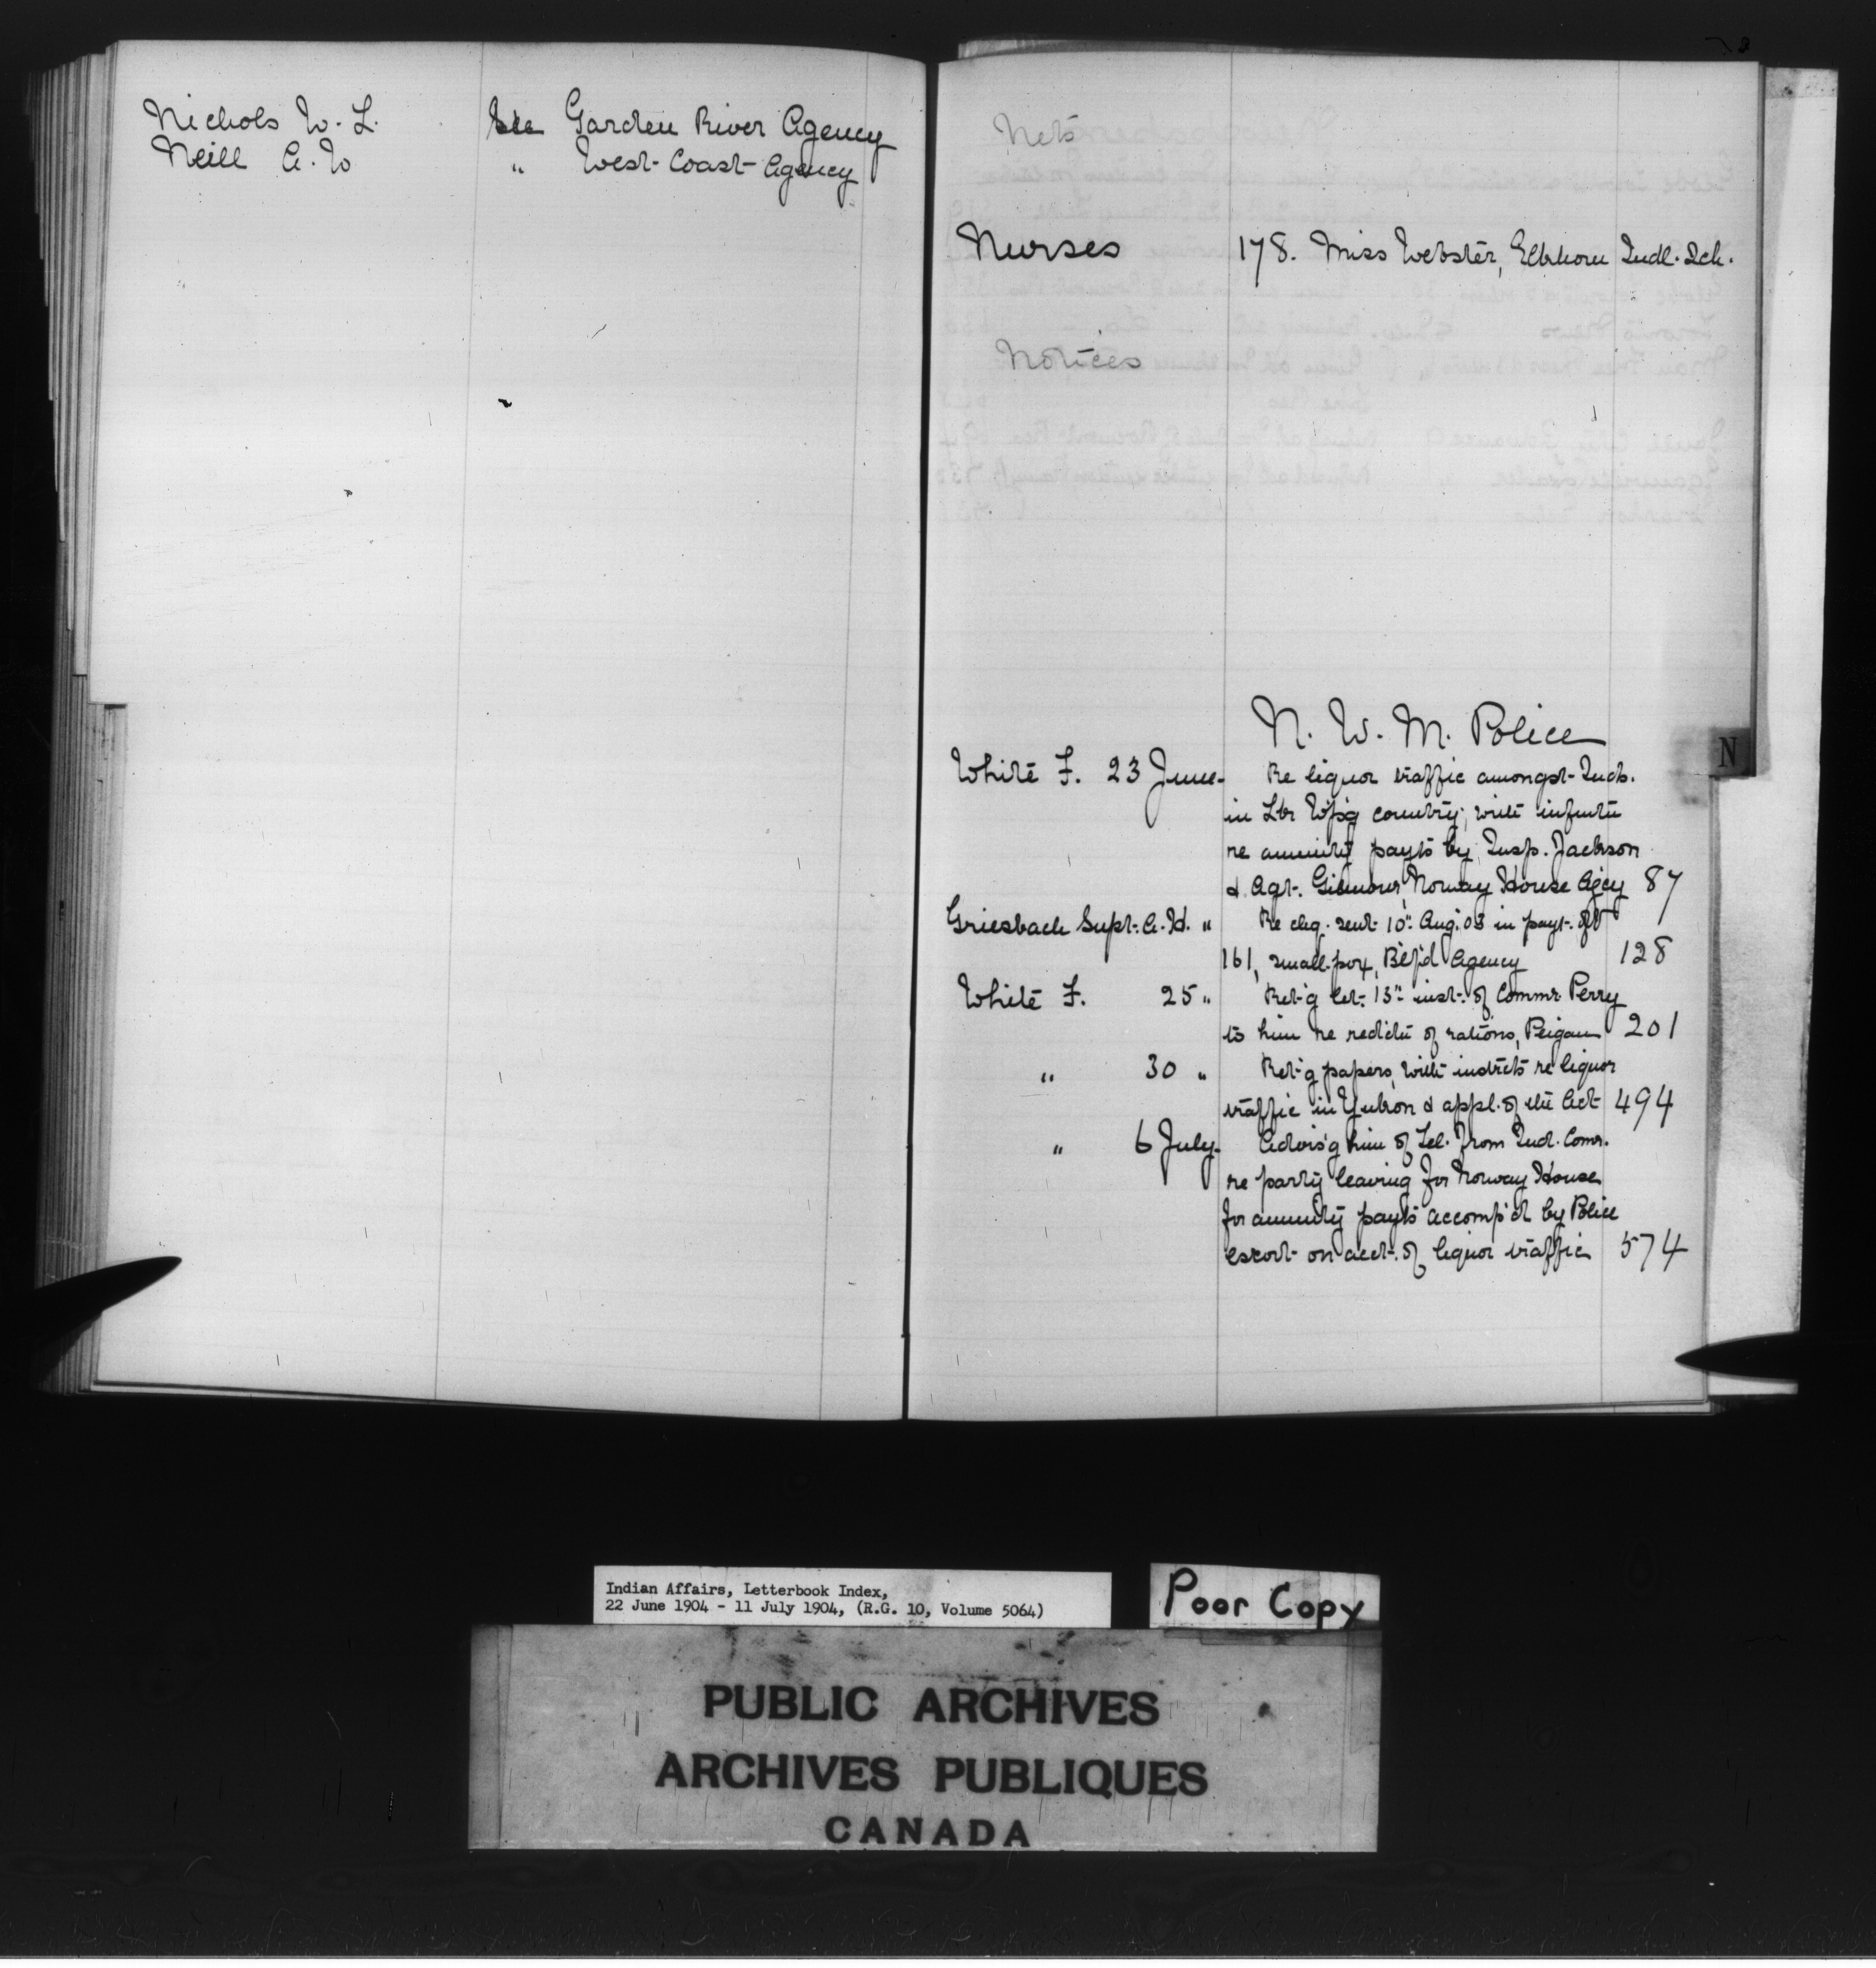 Nichols W. L. See Garden River Agency
Neill A. W " West Coast Agency
Nets
Nurses 178. Miss Webster, Elkhorn Indl. Sch.
Notices
N. W. M. Police
N
White F. 23 June. Re liquor traffic amongst Inds.
in Lke Wpg country; with infmtn
re annuity payts by Insp. Jackson
& Agt. Gilmour, Norway House Agcy 87
Griesbach Supt. A. H. " Re chq. sent 10" Aug. 03 in payt. of
161, small-pox, Blf'd Agency 128
White F. 25 " Ret'g let. 13" inst. of Commr Perry
to him re redctn of rations, Peigan 201
" 30 " Ret'g papers, with instrcts re liquor
traffic in Yukon & appl. of the Act 494
" 6 July. Advis'g him of Tel. from Ind. Comr.
re party leaving for Norway House
for annuity payts accomp'd by Police
escort on acct. of liquor traffic 574
Indian Affairs, Letterbook Index,
22 June 1904 - 11 July 1904, (R.G. 10, Volume 5064)
Poor Copy
PUBLIC ARCHIVES
ARCHIVES PUBLIQUES
CANADA